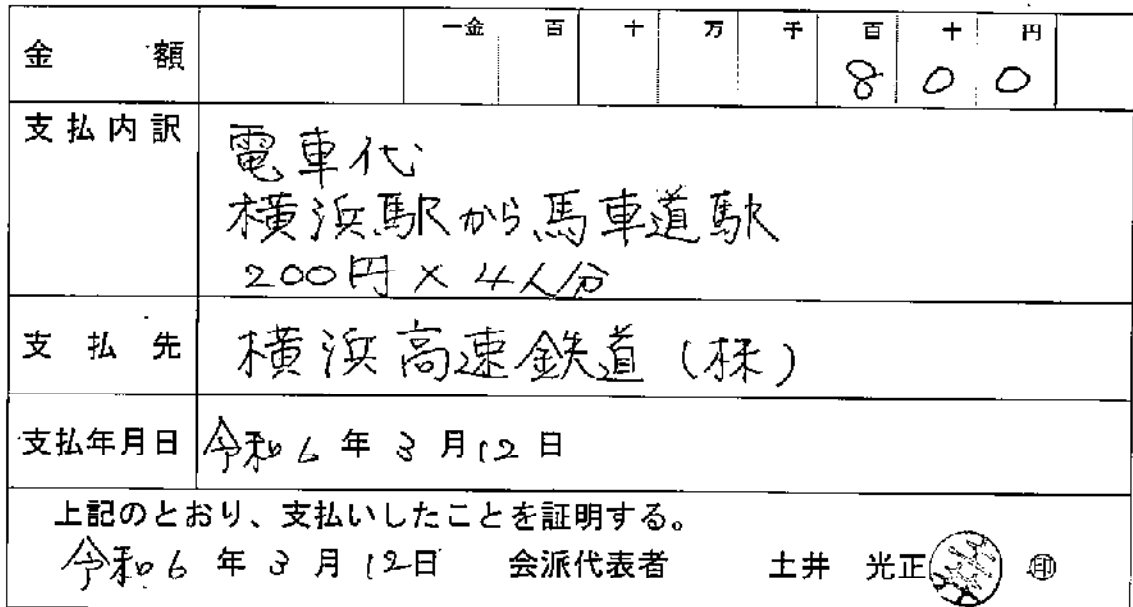 一金 百 十 万 千 百 十 円
金額 8 0 0
支払内訳 電車代
横浜駅から馬車道駅
200円×4人分
支払先 横浜高速鉄道(株)
支払年月日 令和6年3月12日
上記のとおり、支払いしたことを証明する。
令和6年3月12日 会派代表者 土井 光正 ㊞